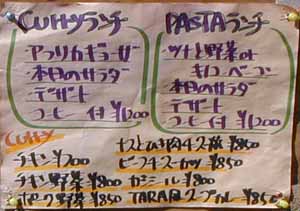 CURRYランチ
アフリカギョーザ
本日のサラダ
デザート
コーヒー付 ¥1200
PASTAランチ
ツナと野菜or
キノコベーコン
本日のサラダ
デザート
コーヒー付 ¥1200
Curry
チキン ¥700
チキン野菜 ¥800
ポーク野菜 ¥850
ナスとひき肉チーズ ¥850
ビーフ ¥850
¥800
TARA ¥850